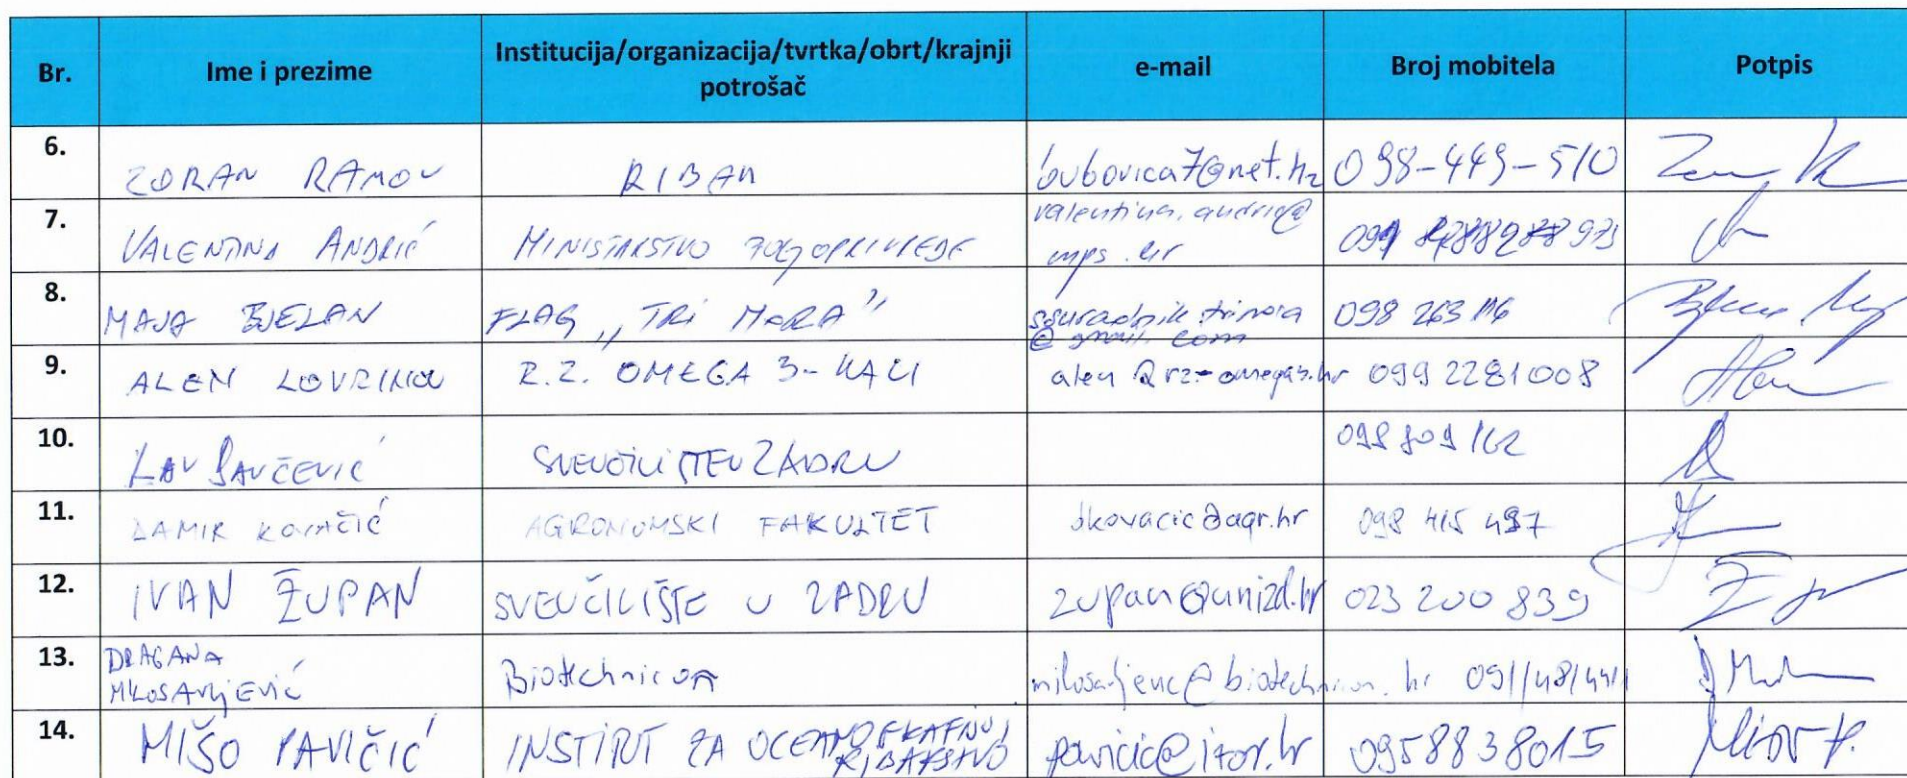 Br. Ime i prezime Institucija/organizacija/tvrtka/obrt/krajnji potrošač e-mail Broj mobitela Potpis
6. ZORAN RAMOV RIBAR bubovica7@net.hr 098-449-510
7. VALENTINA ANDRIĆ MINISTARSTVO POLJOPRIVREDE valentina.andric@
mps.hr
8. MAJA BJELAN FLAG „TRI MORA” ssuradnik.trimora 098 263 116
@gmail.com
9. ALEN LOVRINOV R.Z. OMEGA 3-KALI alen@rz-omega3.hr 099 2281008
10. LAV BAVČEVIĆ SVEUČILIŠTE U ZADRU
11. DAMIR KOVAČIĆ AGRONOMSKI FAKULTET dkovacic@agr.hr 098 415 497
12. IVAN ŽUPAN SVEUČILIŠTE U ZADRU zupan@unizd.hr 023 200 839
13. DRAGANA
MILOSAVLJEVIĆ Biotechnicon
14. MIŠO PAVIČIĆ INSTITUT ZA OCEANOGRAFIJU I
RIBARSTVO pavicic@izor.hr 0958838015